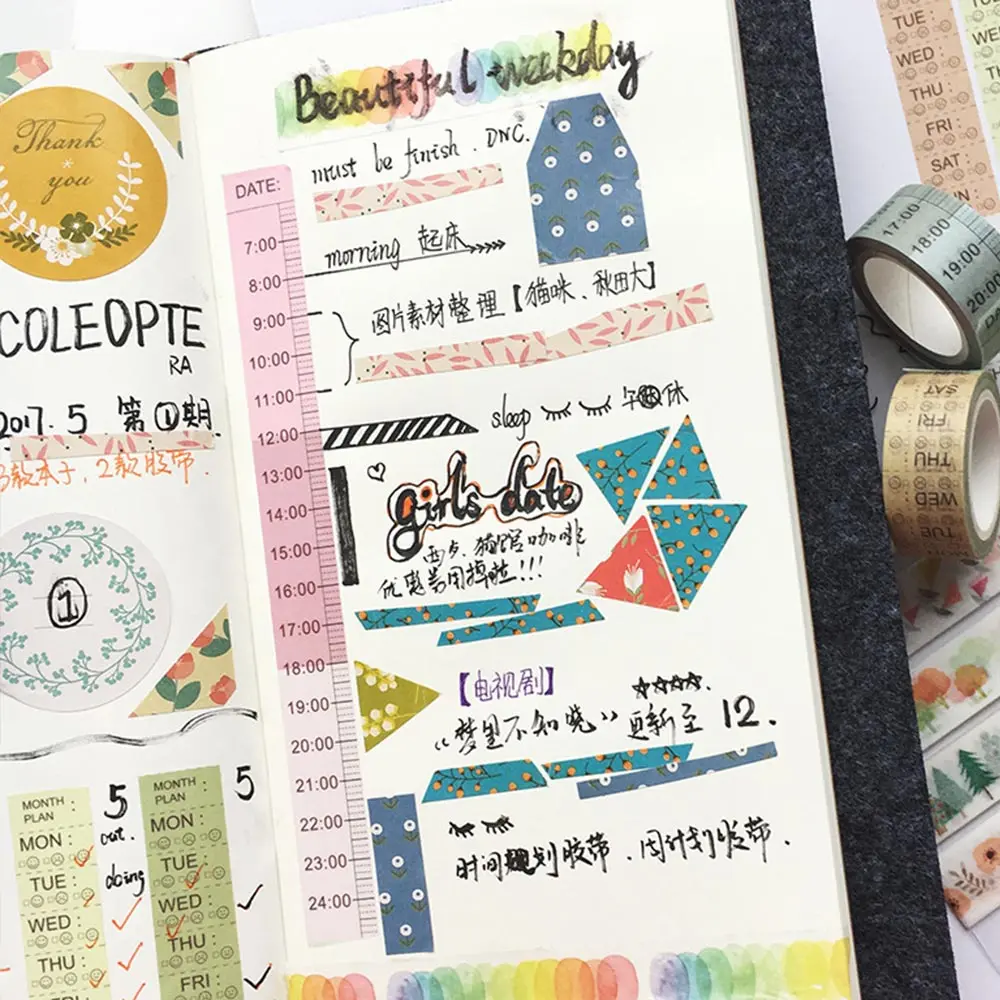 Thank
you
COLEOPTE
RA
2017.5 第①期
3款本子，2款胶带.
1
MONTH PLAN : 5
out.
MON :
doing
TUE :
WED :
THU :
MONTH PLAN : 5
MON :
TUE :
WED :
THU :
FRI :
Beautiful weekday
must be finish. DNC.
DATE:
7:00
morning 起床
8:00
9:00
图片素材整理【猫咪、秋田犬】
10:00
11:00
sleep 午休
12:00
13:00
girls date
14:00
西点.猫馆咖啡
15:00
优惠券用掉啦!!!
16:00
17:00
18:00
【电视剧】
19:00
《梦里不知晓》更新至 12.
20:00
21:00
22:00
时间规划胶带.周计划胶带.
23:00
24:00
TUE :
WED :
THU :
FRI :
SAT :
TUE
WED
THU
17:00
18:00
19:00
20:00
SAT
FRI
THU
WED
TUE